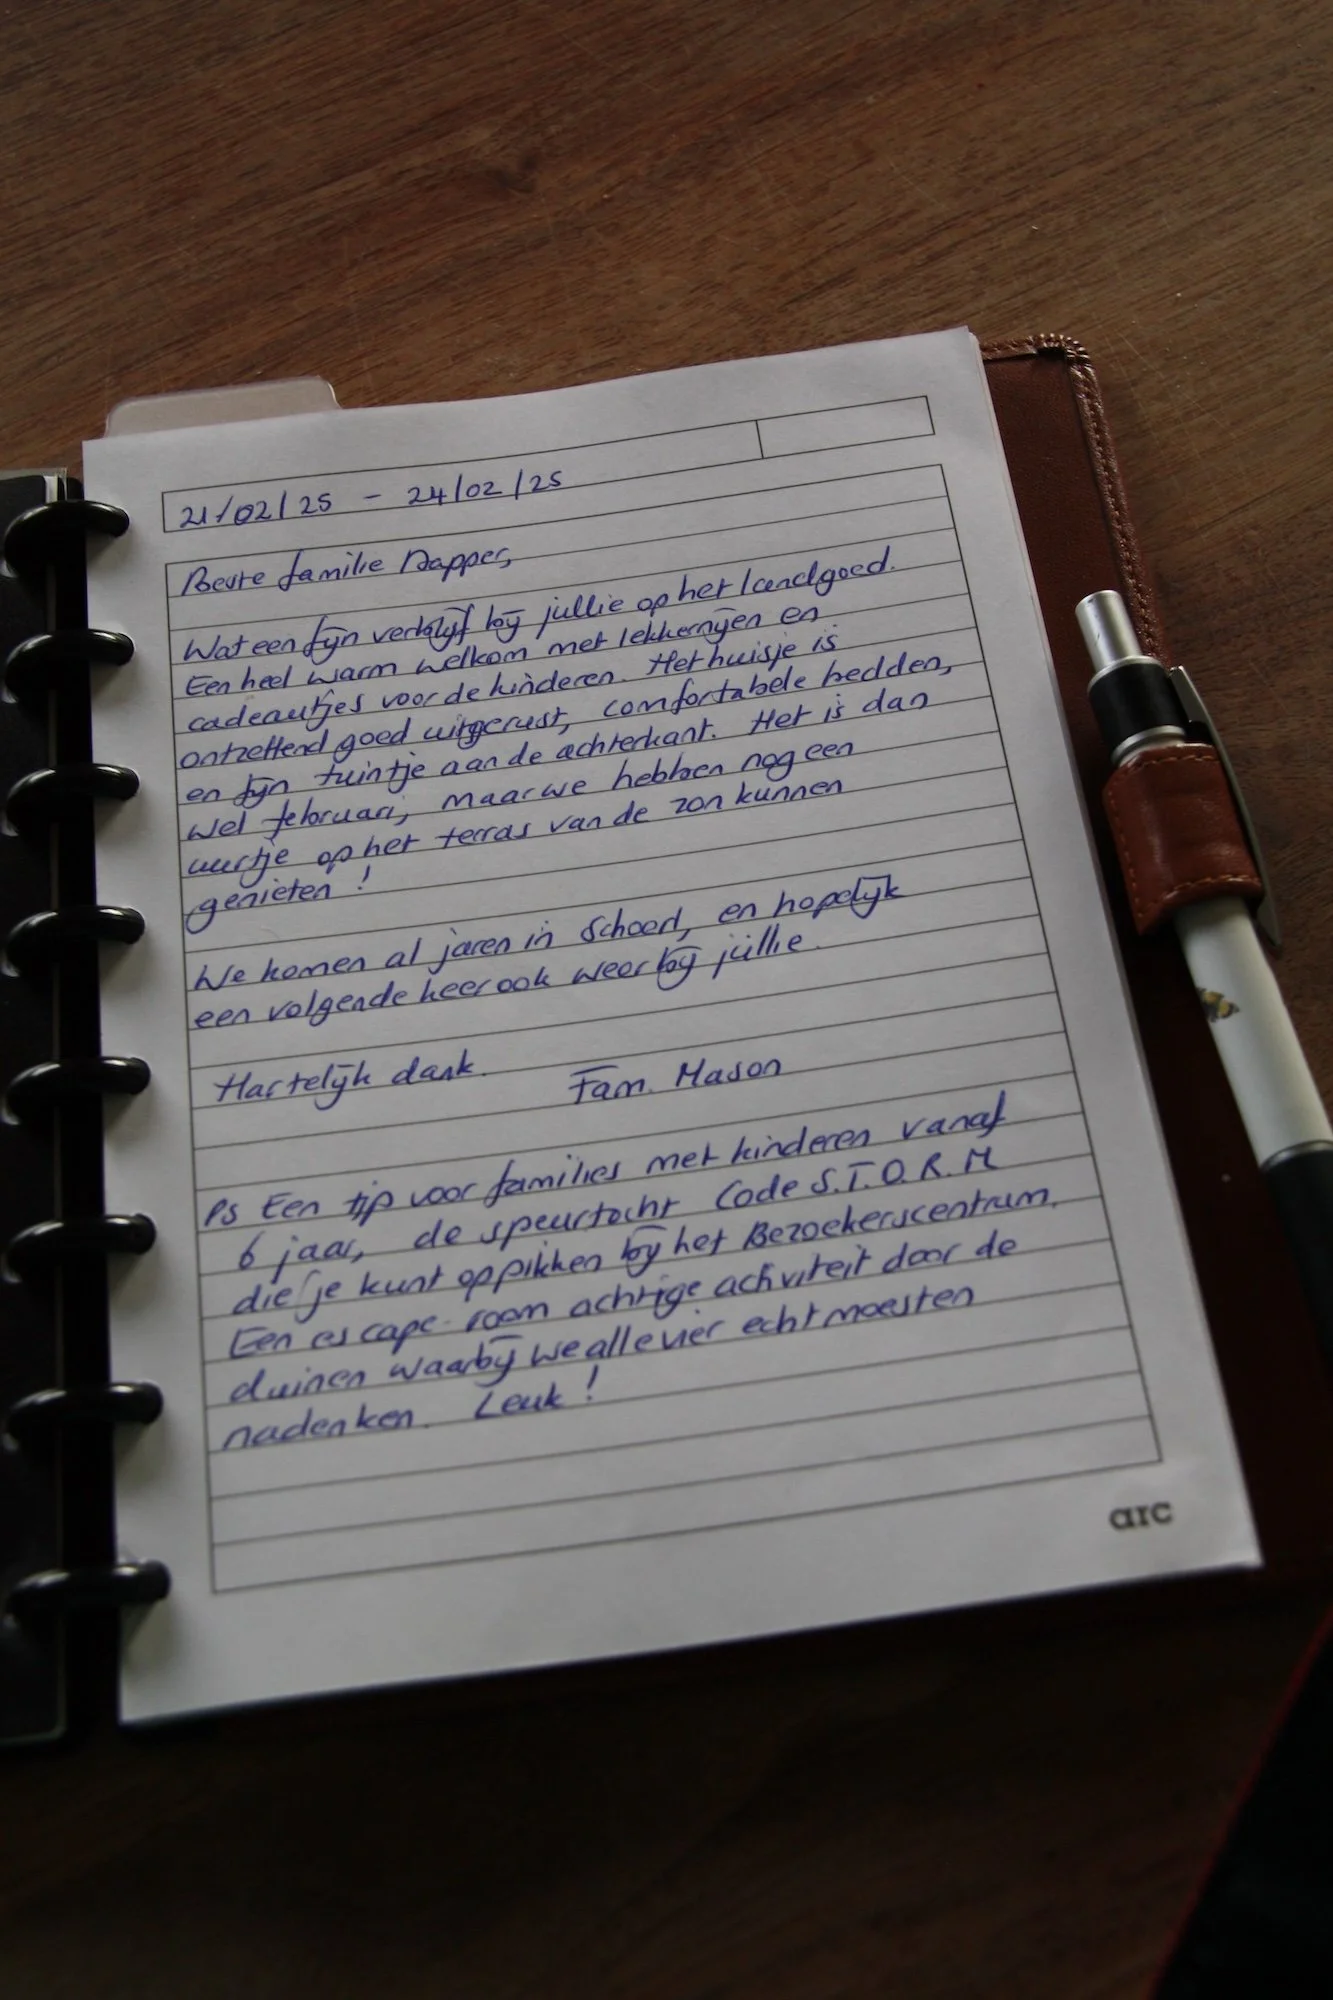 21/02/25 - 24/02/25
Beste familie Dapper,
Wat een fijn verblijf bij jullie op het landgoed.
Een heel warm welkom met lekkernijen en
cadeautjes voor de kinderen. Het huisje is
ontzettend goed uitgerust, comfortabele bedden,
en fijn tuintje aan de achterkant. Het is dan
wel februari, maar we hebben nog een
uurtje op het terras van de zon kunnen
genieten!
We komen al jaren in Schoorl, en hopelijk
een volgende keer ook weer bij jullie.
Hartelijk dank. Fam. Mason
Ps Een tip voor families met kinderen vanaf
6 jaar, de speurtocht Code S.T.O.R.M
die je kunt oppikken bij het Bezoekerscentrum.
Een escape-room achtige activiteit door de
duinen waarbij we alle vier echt moesten
nadenken. Leuk!
arc